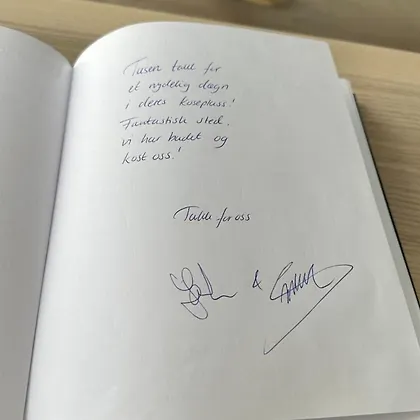 Tusen takk for
et nydelig døgn
i deres koseplass!
Fantastisk sted,
vi har badet og
kost oss!
Takk for oss
&